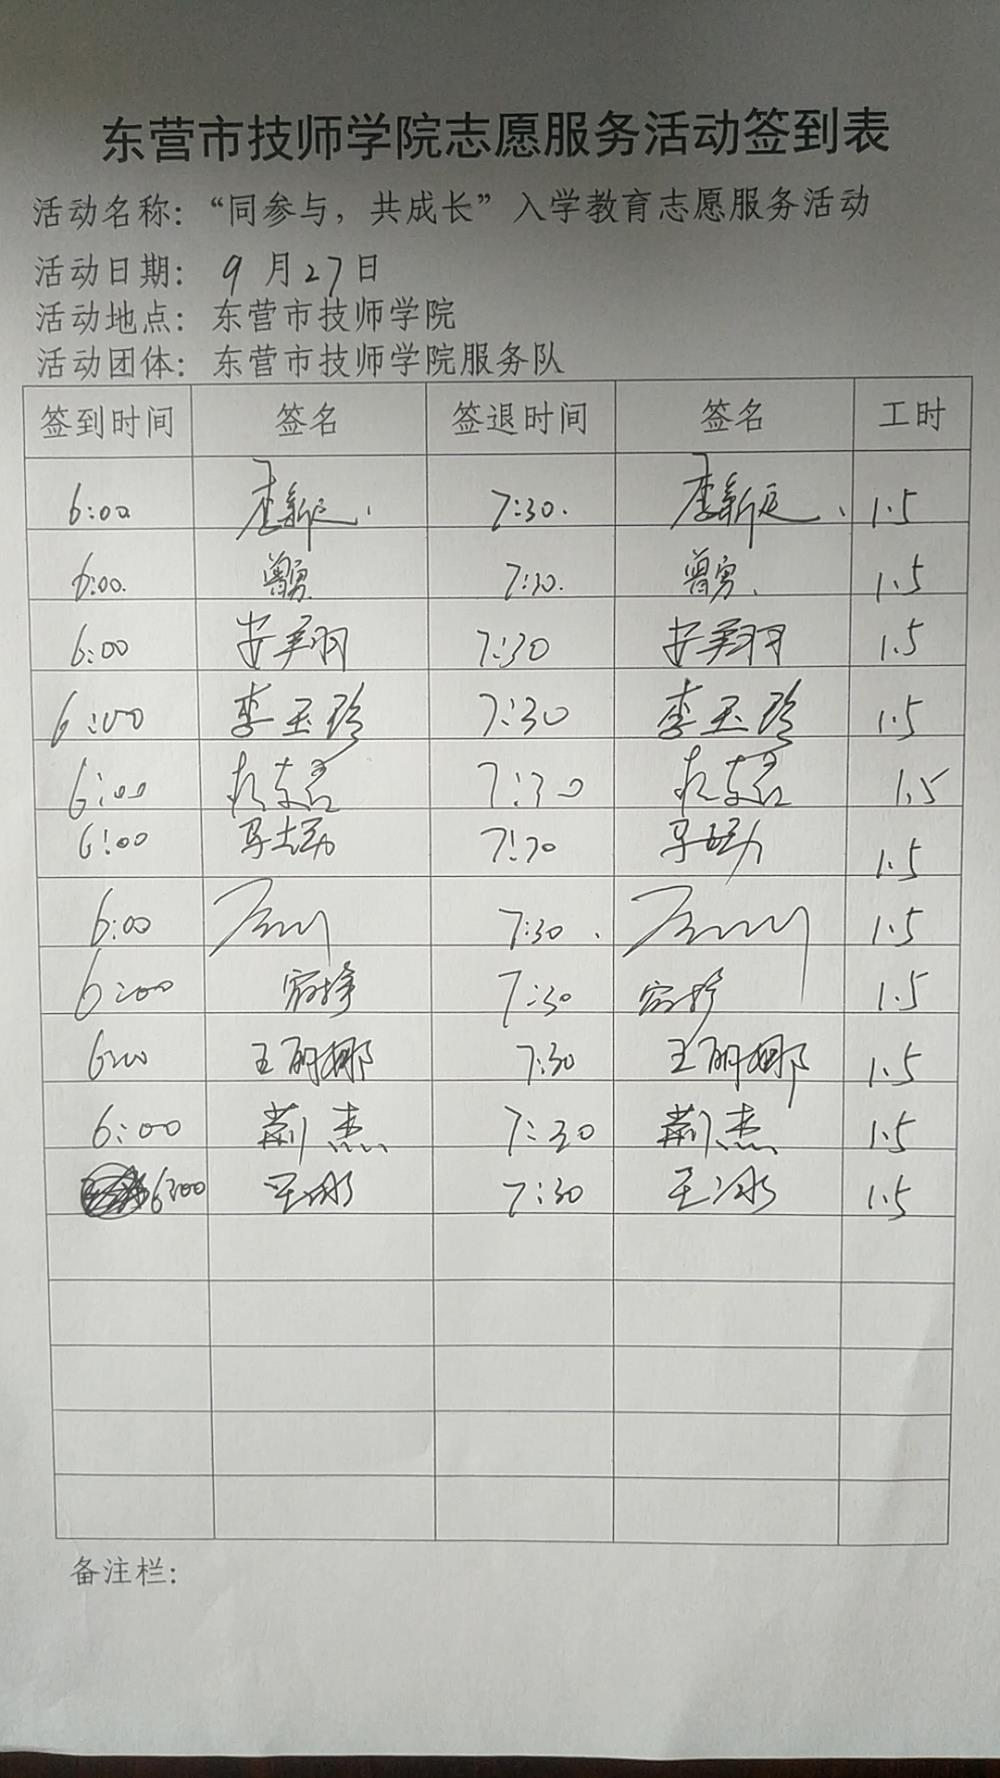 东营市技师学院志愿服务活动签到表
活动名称：“同参与，共成长”入学教育志愿服务活动
活动日期： 9月27日
活动地点： 东营市技师学院
活动团体： 东营市技师学院服务队
签到时间 签名 签退时间 签名 工时
6:00 李新廷 7:30 李新廷 1.5
6:00 曾勇 7:30 曾勇 1.5
6:00 安美羽 7:30 安美羽 1.5
6:00 李玉玲 7:30 李玉玲 1.5
6:00 7:30 1.5
6:00 7:30 1.5
6:00 7:30 1.5
6:00 7:30 1.5
6:00 王丽娜 7:30 王丽娜 1.5
6:00 荆杰 7:30 荆杰 1.5
6:00 王冰 7:30 王冰 1.5
备注栏：